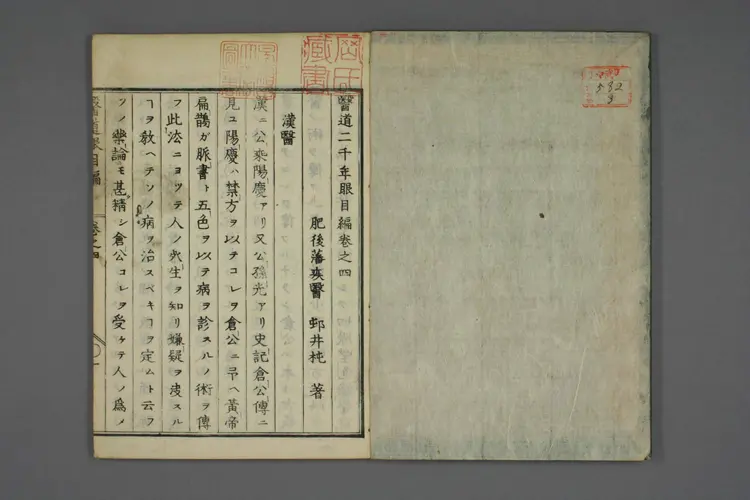 醫道二千年眼目編卷之四
肥後藩疾醫 邨井杶 著
漢醫
漢ニ公乘陽慶アリ又公孫光アリ史記倉公傳ニ
見ユ陽慶ハ禁方ヲ以テコレヲ倉公ニ予ヘ黃帝
扁鵲ガ脈書ト五色ヲ以テ病ヲ診スルノ術ヲ傳
フ此法ニヨツテ人ノ死生ヲ知リ嫌疑ヲ決スル
ヿヲ敎ヘテソノ病ヲ治スベキヿヲ定ムト云フ
ソノ藥論モ甚精シ倉公コレヲ受ケテ人ノ爲メ
卷之四
藏書